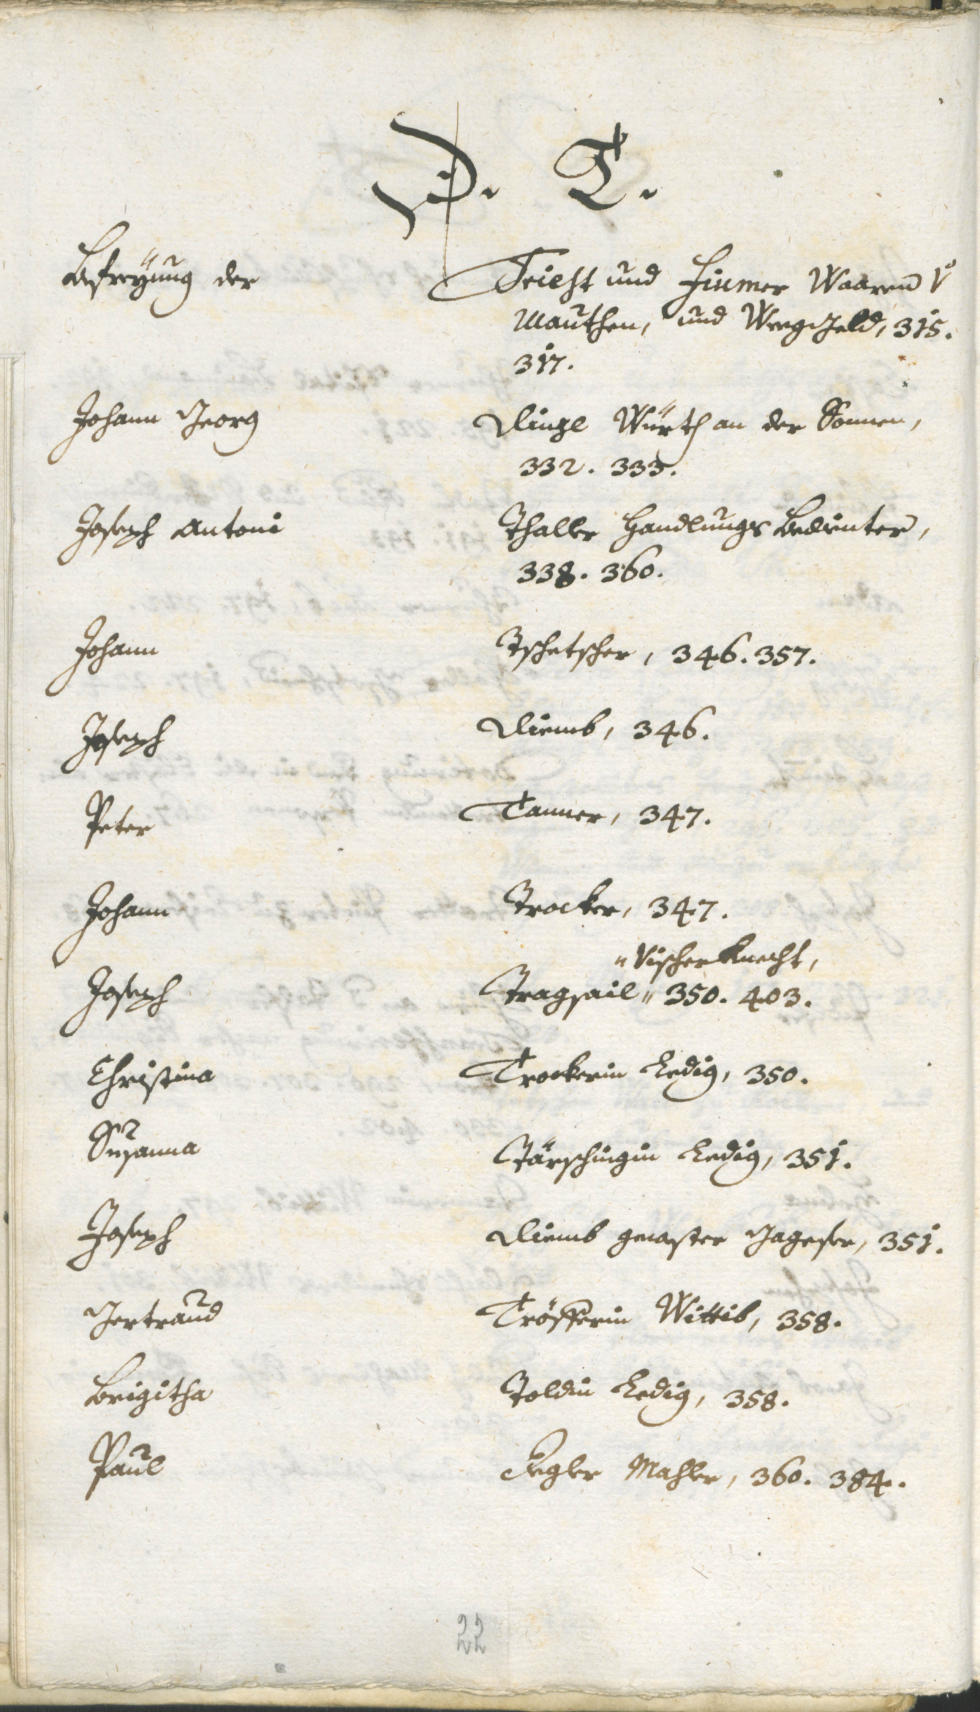 D. T.
Befreyung der Triest und Fiumer Waaren V
Mauthen, und Weeg Geld, 315.
317.
Johann Georg Dinzl Würth an der Sonnen,
332. 333.
Joseph Antoni Thaller Handlungs Bedienter,
338. 360.
Johann Tschetscher, 346. 357.
Joseph Diemb, 346.
Peter Tanner, 347.
Johann Trocker, 347.
" Vischer Knecht,
Joseph Tragsail " 350. 403.
Christina Trockerin Ledig, 350.
Susanna Tärschingin Ledig, 351.
Joseph Diemb gewester 351.
Gertraud Tröfferin Wittib, 358.
Brigitha Toldin Ledig, 358.
Paul Mahler, 360. 384.
22